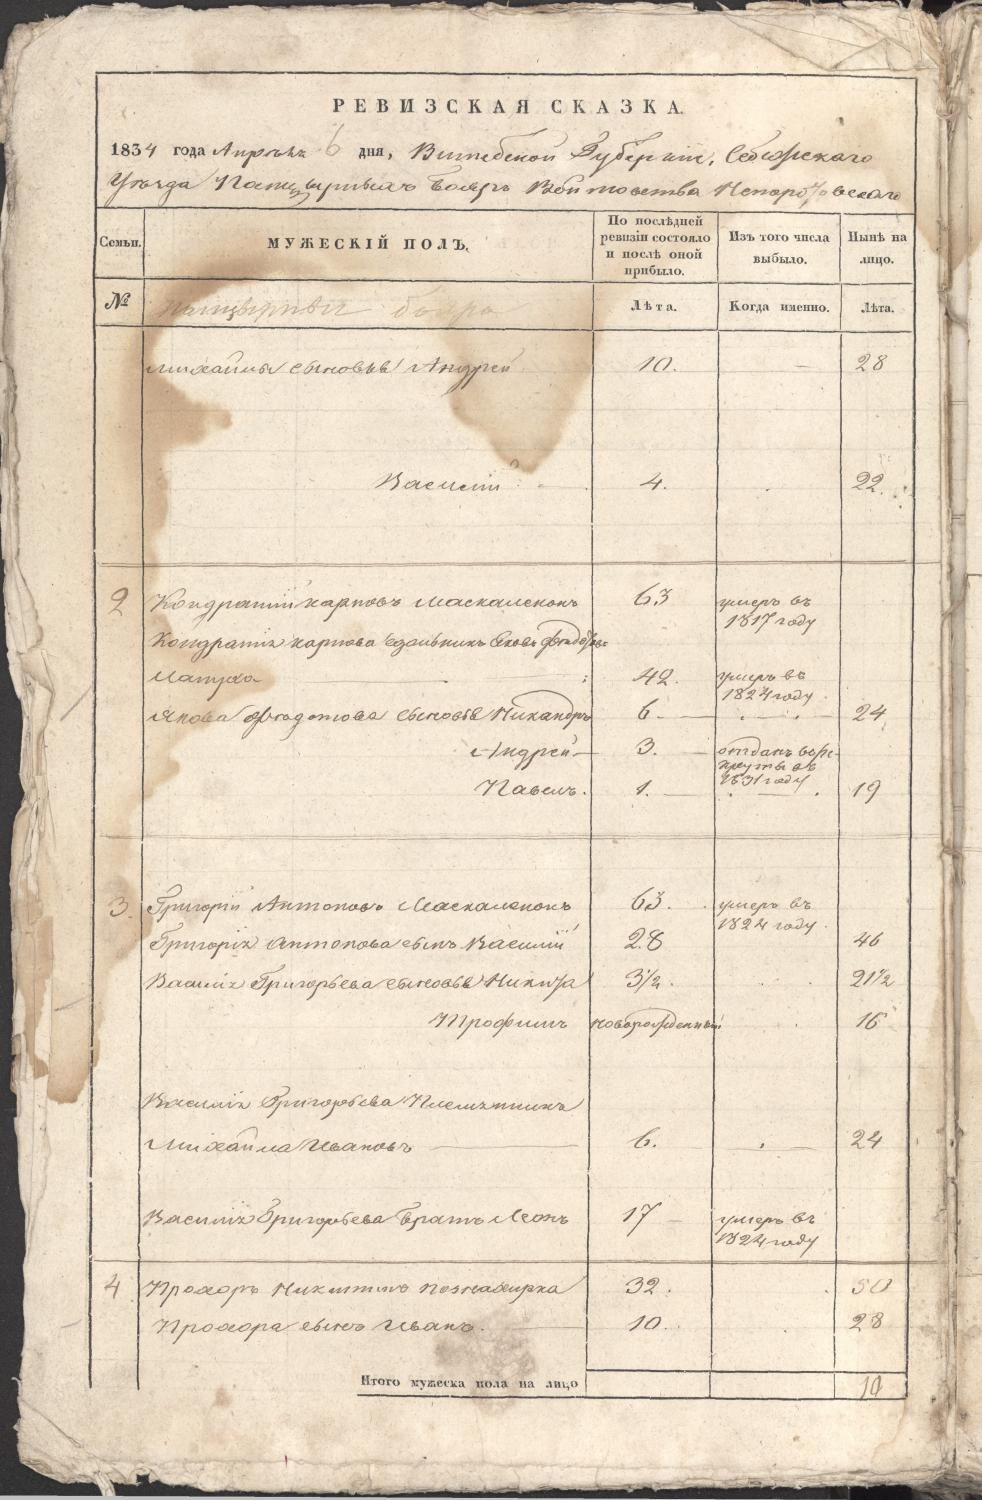 РЕВИЗСКАЯ СКАЗКА.
1834 года Апреля 6 дня, Витебской Губернии, Себежскаго
Уезда Панцырныхъ Бояръ Войтовства Непоротовскаго
Семьи. МУЖЕСКІЙ ПОЛЪ. По послѣдней ревизіи состояло и послѣ оной прибыло. Изъ того числа выбыло. Нынѣ на лицо.
№ панцырные бояра Лѣта. Когда именно. Лѣта.
Михайлы сыновья Андрей 10. 28
Василій 4. 22.
2 Кондратій Карповъ Маскаленокъ 63 умеръ въ 1817 году
Кондратія Карпова Яковъ Федотовъ
42. умеръ въ 1824 году
Якова Федотова сыновья Никандръ 6 24
Андрей 3. отданъ въ рекруты въ 1831 году
Павелъ. 1. 19
3. Григорій Антоновъ Маскаленокъ 63. умеръ въ 1824 году.
Григорія Антонова сынъ Василій 28 46
Василія Григорьева сыновья Никита 3½. 21½
Трофимъ новорожденный 16
Василія Григорьева Племянникъ
Михайла Ивановъ 6. 24
Василія Григорьева братъ Леонъ 17 умеръ въ 1824 году
4 Прохоръ Никитинъ 32. 50
Прохора сынъ Иванъ. 10. 28
Итого мужеска пола на лицо 10